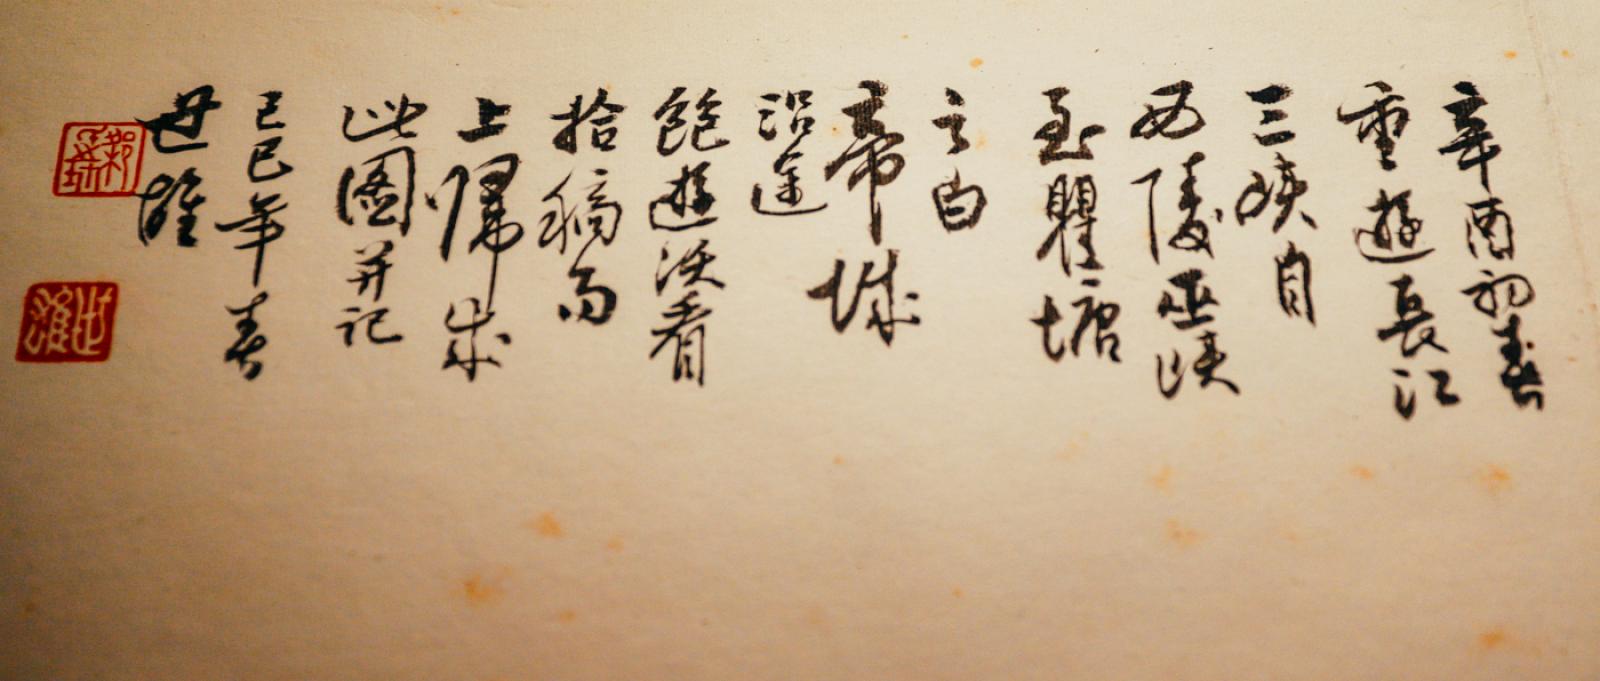 辛酉初春
重遊長江
三峽自
西陵巫峽
至瞿塘
之白
帝城
沿途
飽遊沃看
拾稿而
上歸成
此圖并記
己巳年春
世雄